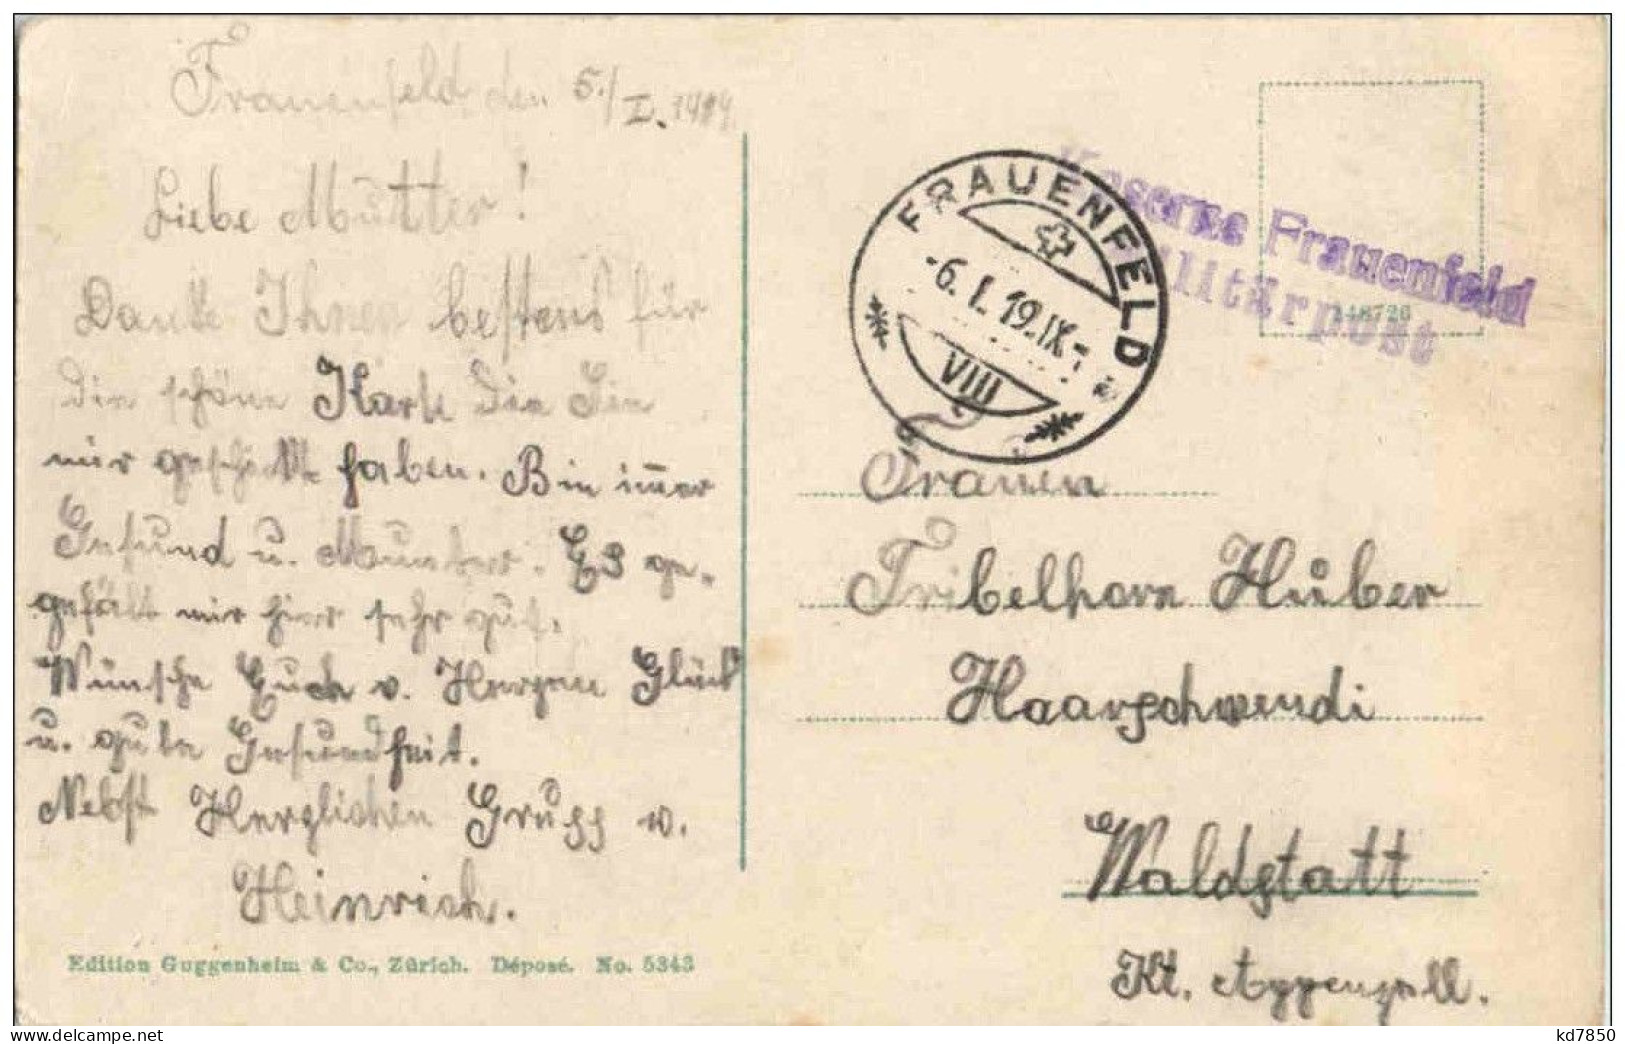 Frauenfeld, den 5./I. 1919.
Liebe Mutter!
Danke Ihnen bestens für
die schöne Karte die Sie
mir geschickt haben. Bin immer
Gesund u. Munter. Es ge-
gefält mir hier sehr gut.
Wünsche Euch v. Herzen Glück
u. gute Gesundheit.
Nebst Herzlichen Gruss v.
Heinrich.
Edition Guggenheim & Co., Zürich. Déposé. No. 5343
FRAUENFELD
-6.I.19.IX-
VIII
Kaserne Frauenfeld
Militärpost
148726
Frauen
Tribelhorn Huber
Haarschwendi
Waldstatt
Kt. Appenzell.
kd7850